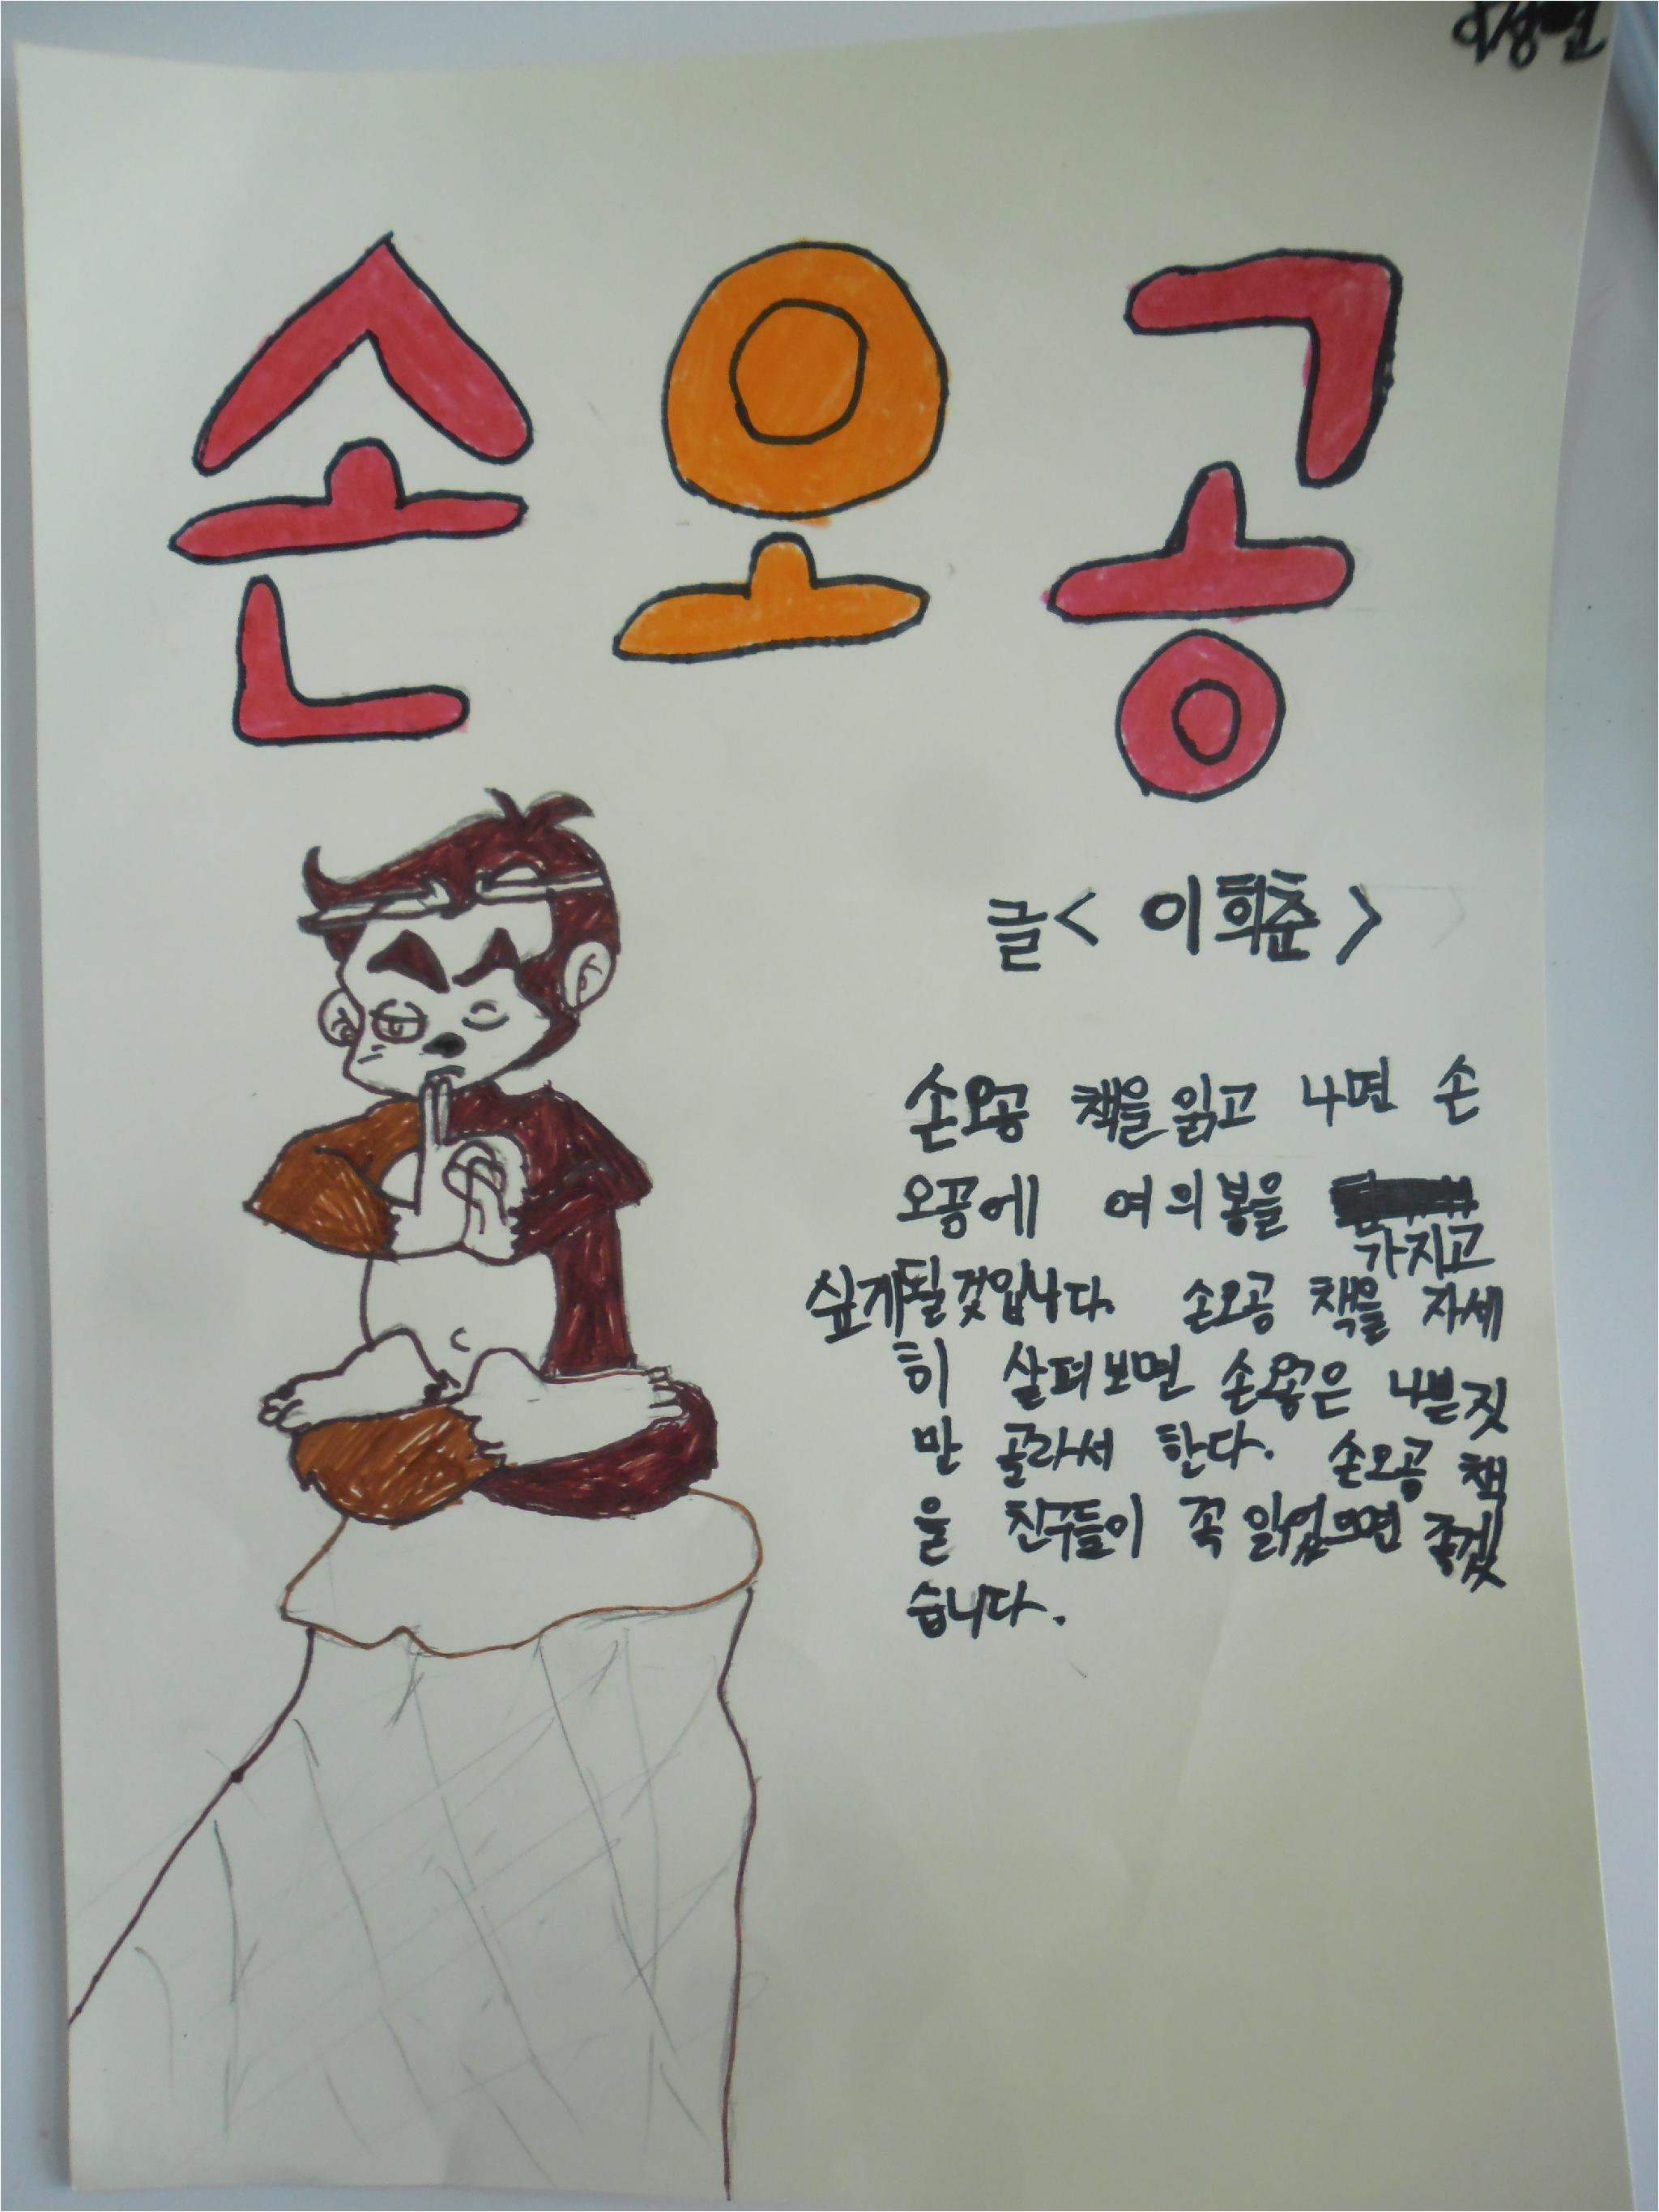 손오공
글< 이희춘 >
손오공 책을 읽고 나면 손
오공에 여의봉을
가지고
싶게될것입니다. 손오공 책을 자세
히 살펴보면 손오공은 나쁜짓
만 골라서 한다. 손오공 책
을 친구들이 꼭 읽었으면 좋겠
습니다.